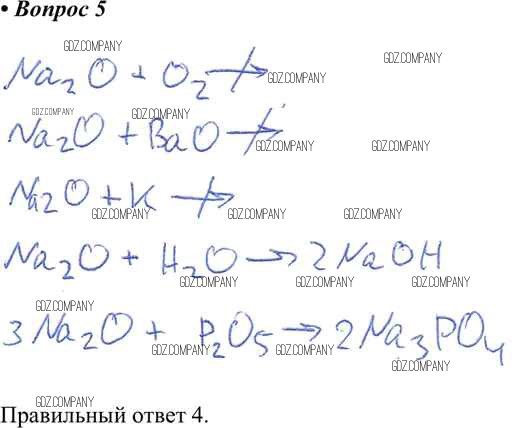 • Вопрос 5
GDZ.COMPANY
Na₂O + O₂ ↛
GDZ.COMPANY
GDZ.COMPANY GDZ.COMPANY
Na₂O + BaO ↛
GDZ.COMPANY GDZ.COMPANY
Na₂O + K ↛
GDZ.COMPANY GDZ.COMPANY GDZ.COMPANY
Na₂O + H₂O → 2NaOH
GDZ.COMPANY GDZ.COMPANY GDZ.COMPANY
GDZ.COMPANY
3Na₂O + P₂O₅ → 2Na₃PO₄
GDZ.COMPANY GDZ.COMPANY GDZ.COMPANY
GDZ.COMPANY
GDZ.COMPANY
Правильный ответ 4.